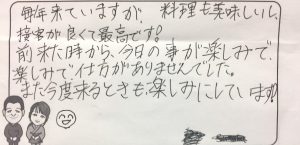 毎年来ていますが、料理も美味しいし、
接客が良くて最高です!
前来た時から、今日の事が楽しみで、
楽しみで仕方がありませんでした。
また今度来るときも楽しみにしています!